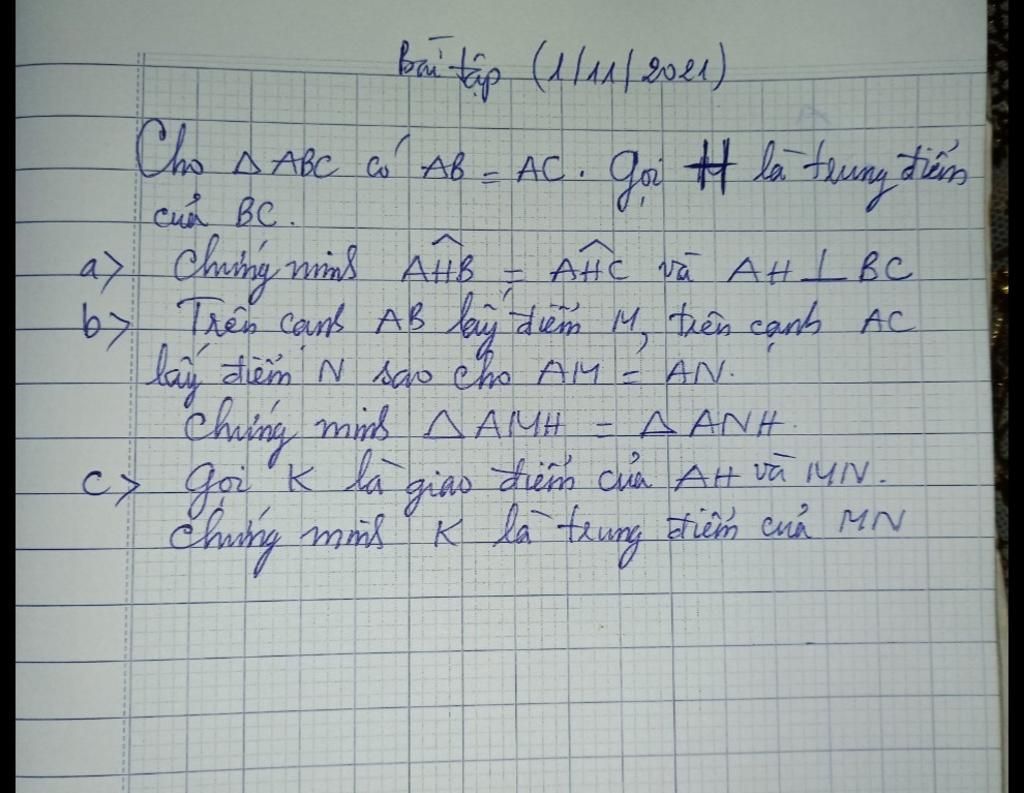 Bài tập (1/11/2021)
Cho △ ABC có AB = AC. Gọi H là trung điểm
của BC.
a> Chứng minh \widehat{AHB} = \widehat{AHC} và AH ⊥ BC
b> Trên cạnh AB lấy điểm M, trên cạnh AC
lấy điểm N sao cho AM = AN.
Chứng minh △ AMH = △ ANH.
c> Gọi K là giao điểm của AH và MN.
Chứng minh K là trung điểm của MN